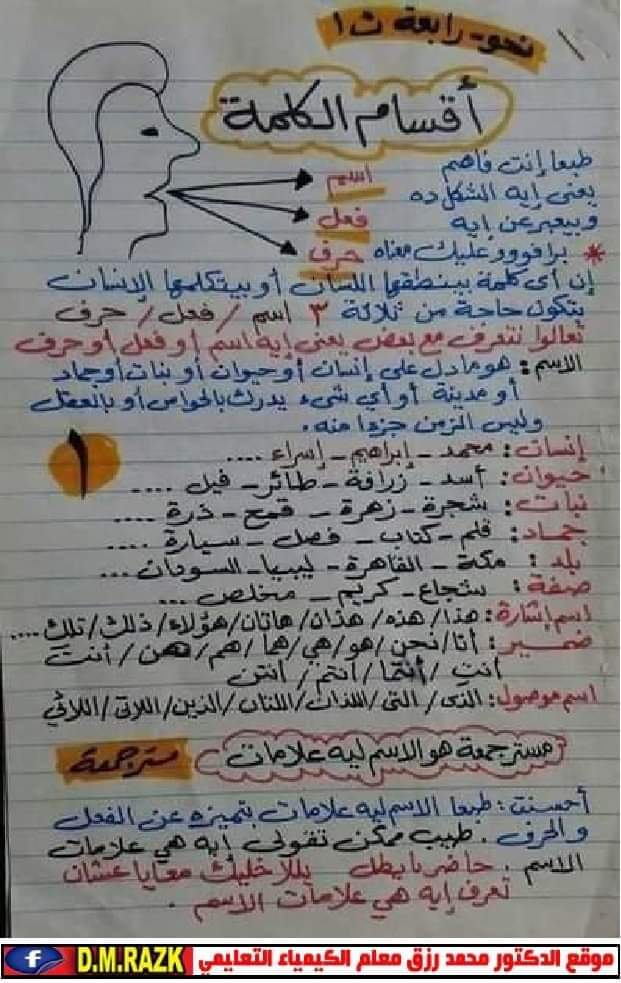 نحو - رابعة ت ١
أقسام الكلمة
طبعا إنت فاهم
يعنى إيه الشكل ده
وبيعبر عن إيه
اسم
فعل
حرف
* برافووو عليك معناه
إن أى كلمة بينطقها اللسان أو بيتكلمها الإنسان
بتكون حاجة من ثلاثة ٣ اسم / فعل / حرف
تعالوا نتعرف مع بعض يعنى إيه اسم أو فعل أو حرف
الاسم : هو ما دل على إنسان أو حيوان أو نبات أو جماد
أو مدينة أو أي شىء يدرك بالحواس أو بالعقل
وليس الزمن جزءا منه .
١
إنسان : محمد - إبراهيم - إسراء ....
حيوان : أسد - زرافة - طائر - فيل ....
نبات : شجرة - زهرة - قمح - ذرة ....
جماد : قلم - كتاب - فصل - سيارة ....
بلد : مكة - القاهرة - ليبيا - السودان ...
صفة : شجاع - كريم - مخلص ...
اسم إشارة : هذا / هذه / هذان / هاتان / هؤلاء / ذلك / تلك ....
ضمير : أنا / نحن / هو / هي / هما / هم / هن / أنت
أنتِ / أنتما / أنتم / أنتن
اسم موصول : الذى / التى / اللذان / اللتان / الذين / اللاتى / اللائي
مستر جمعة هو الاسم ليه علامات
مستر جمعة
أحسنت : طبعا الاسم ليه علامات بتميزه عن الفعل
والحرف . طيب ممكن تقولى إيه هي علامات
الاسم . حاضر يا بطل يللا خليك معايا عشان
تعرف إيه هي علامات الاسم .
موقع الدكتور محمد رزق معلم الكيمياء التعليمي
D.M.RAZK
f